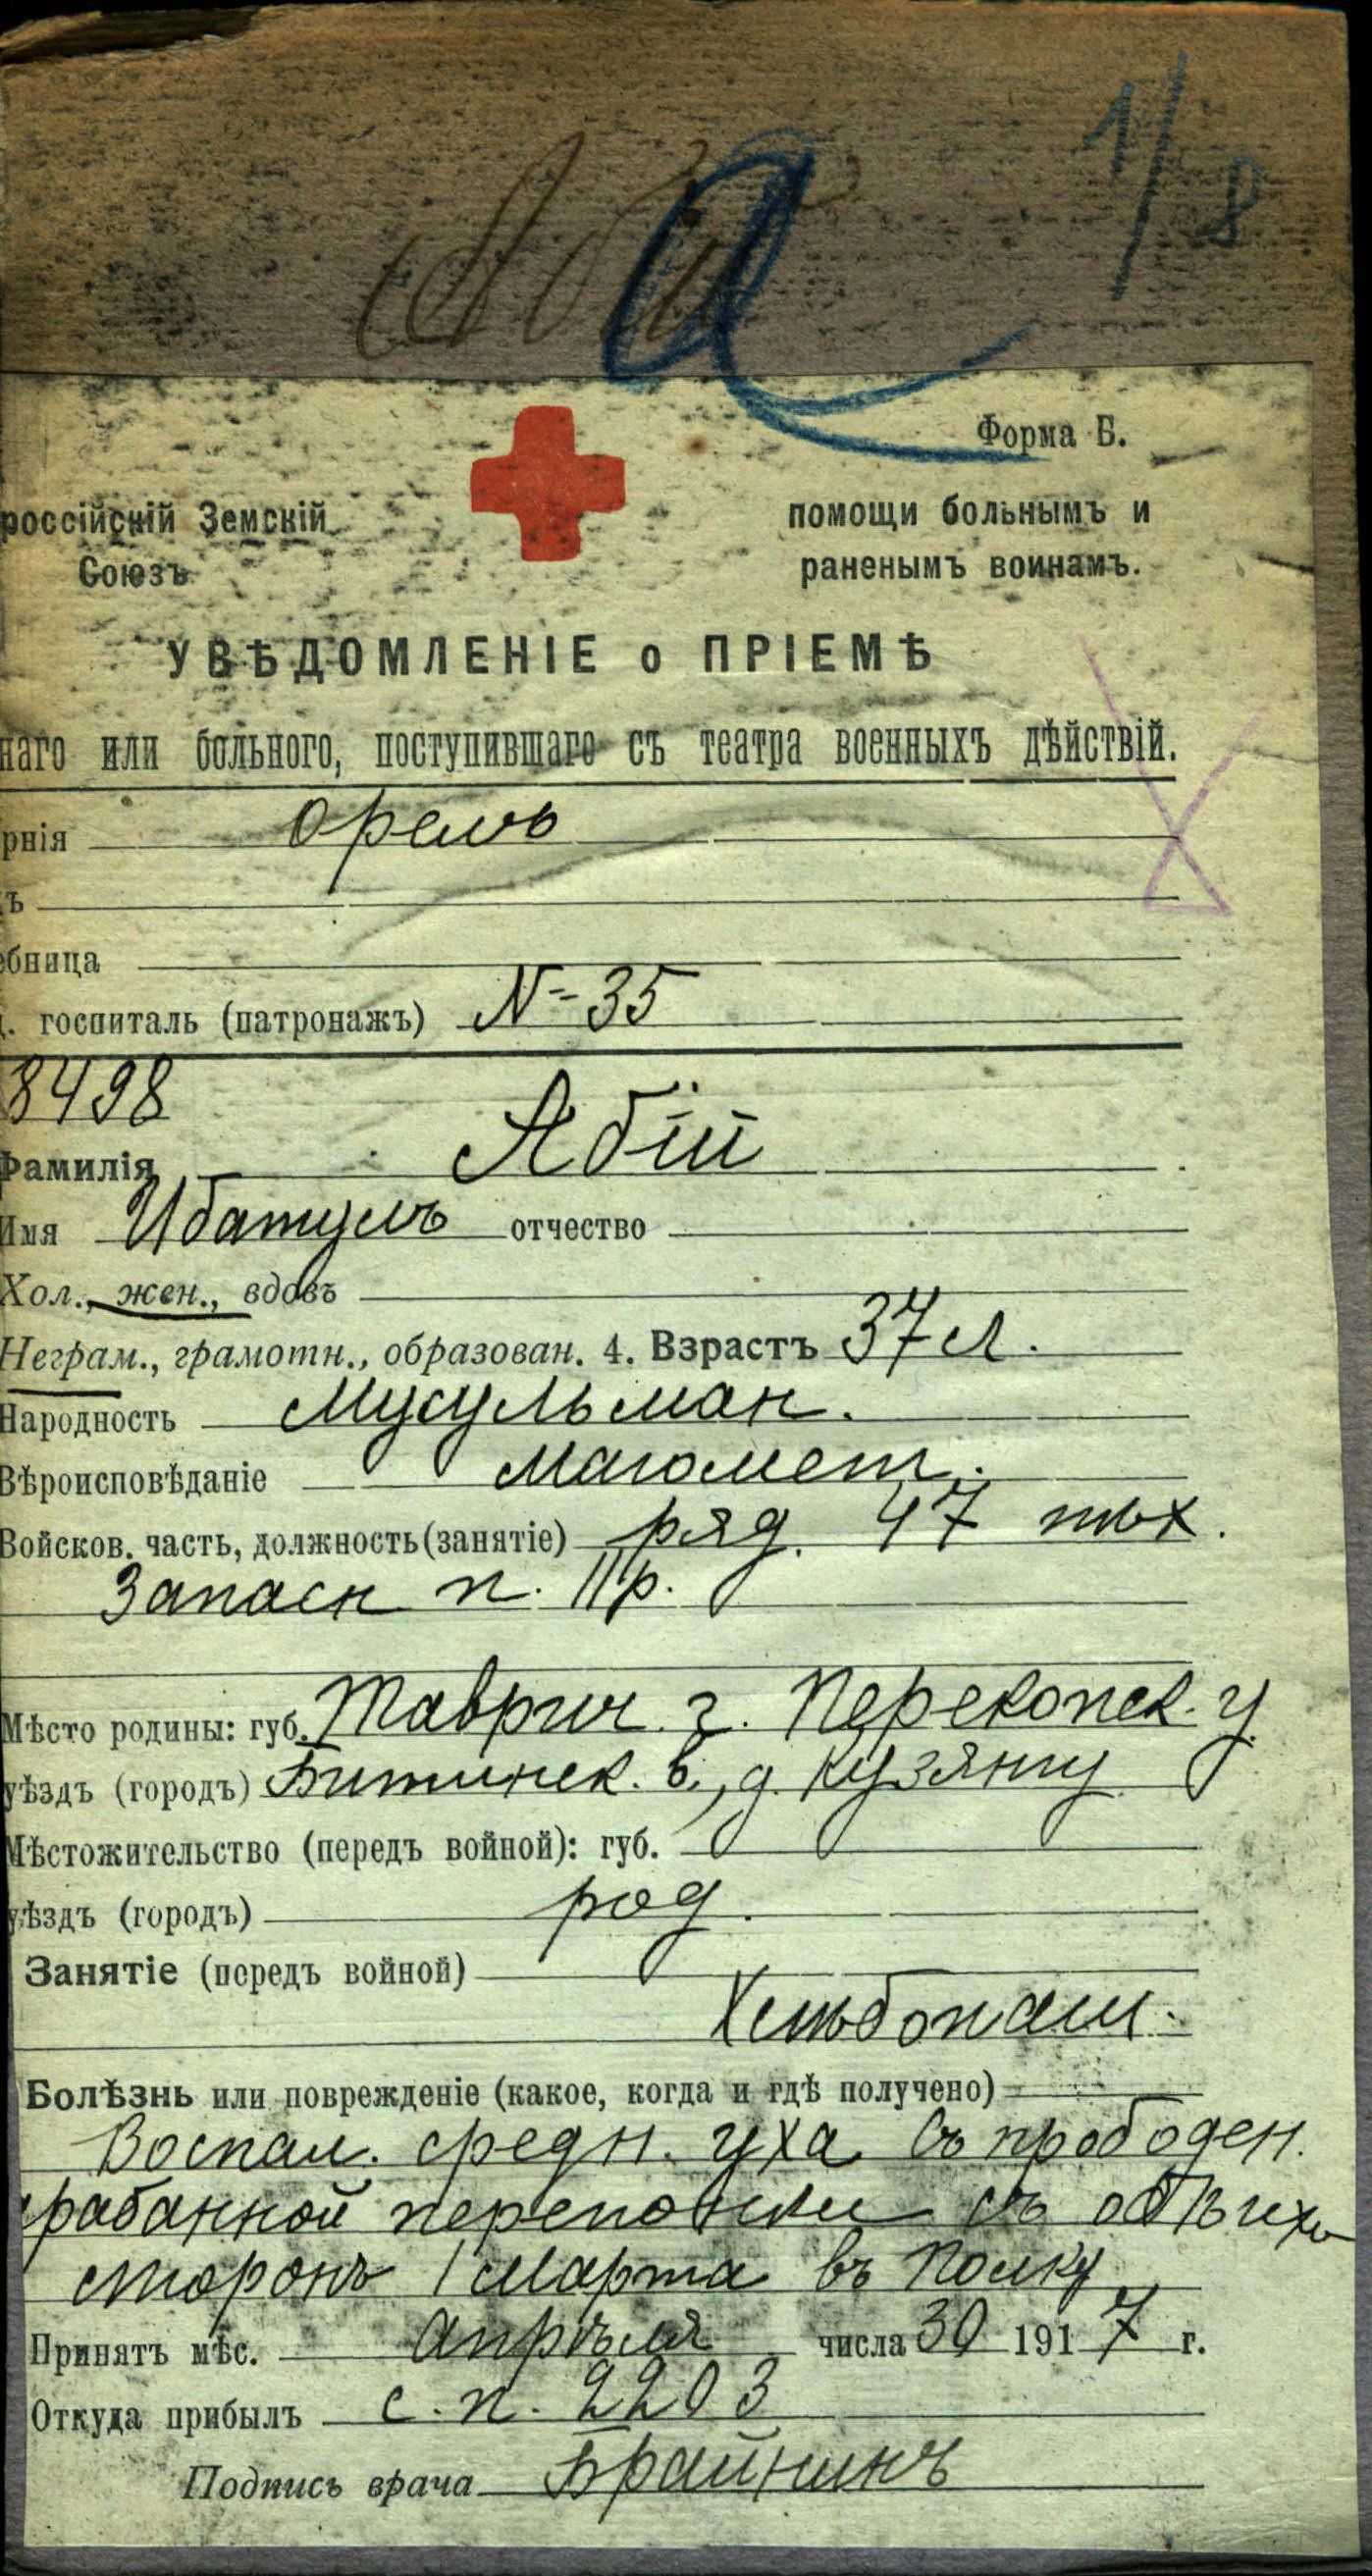 Аб
а
1/8
Форма Б.
россійскій Земскій помощи больнымъ и
Союзъ раненымъ воинамъ.
УВѢДОМЛЕНІЕ о ПРІЕМѢ
наго или больного, поступившаго съ театра военныхъ дѣйствій.
рнія Орелъ
ъ
ебница
. госпиталь (патронажъ) №35
8498
Фамилія Абій
Имя Ибатулъ отчество
Хол., жен., вдовъ
Неграм., грамотн., образован. 4. Взрастъ 37 л.
Народность Мусульман.
Вѣроисповѣданіе Магомет.
Войсков. часть, должность (занятіе) ряд. 47 пѣх.
Запасн п. 11 р.
Мѣсто родины: губ. Таврич. г. Перекопск. у
уѣздъ (городъ) Битинск. в, д. Кузянгу
Мѣстожительство (передъ войной): губ.
уѣздъ (городъ) род.
Занятіе (передъ войной)
Хлѣбопаш.
Болѣзнь или поврежденіе (какое, когда и гдѣ получено)
Воспал. средн. уха съ прободен.
рабанной перепонки съ обѣихъ
сторонъ 1 Марта въ полку
Принятъ мѣс. апрѣля числа 30 1917 г.
Откуда прибылъ с. п. 2203
Подпись врача Брайнинъ